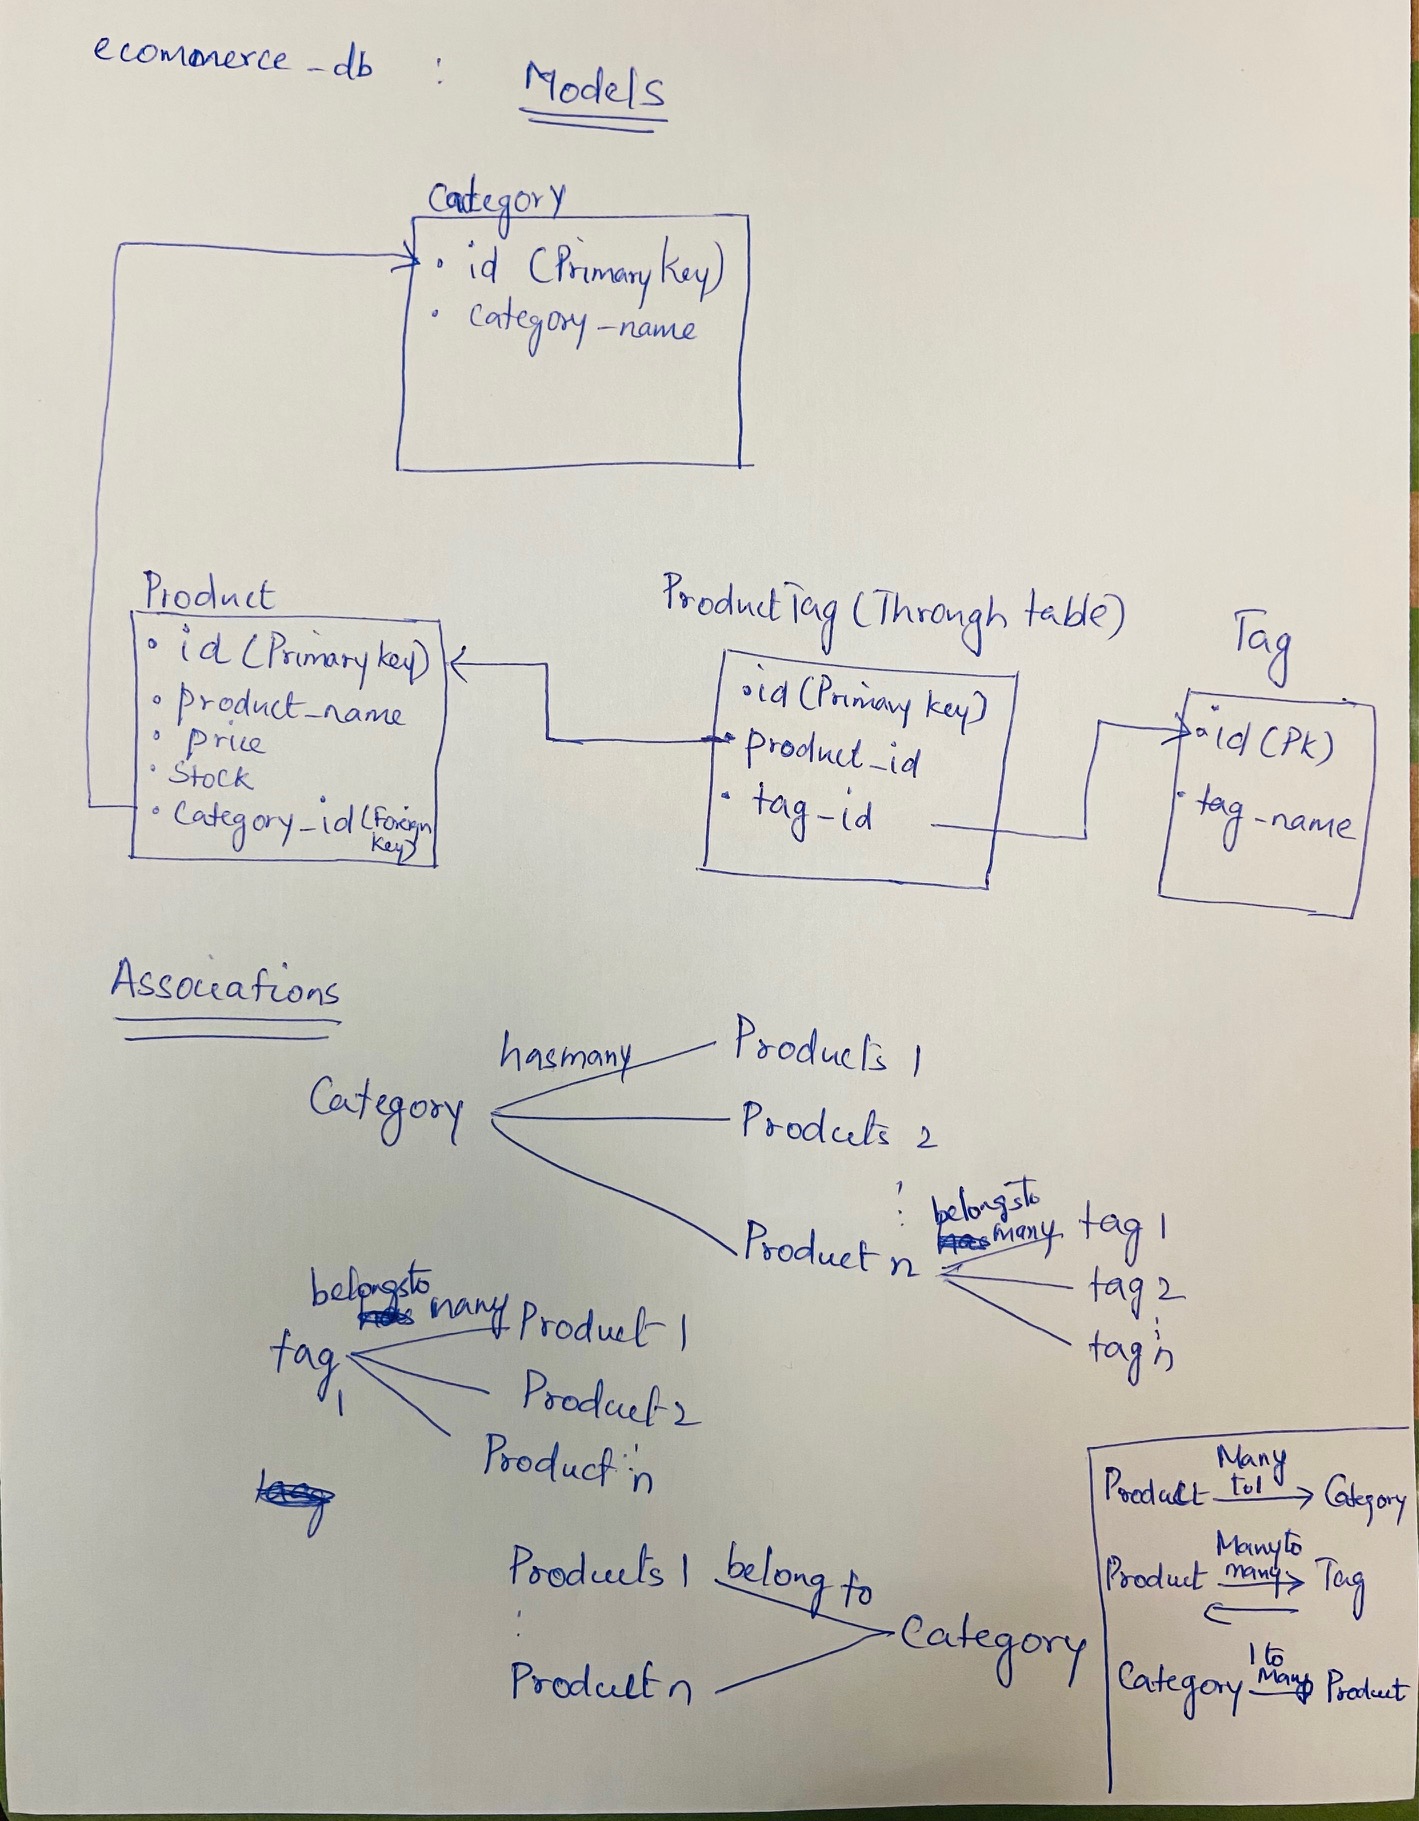 ecommerce_db : Models
Category
• id (Primary key)
• Category-name
Product
• id (Primary key)
• product_name
• price
• Stock
• Category_id (Foreign
key)
ProductTag (Through table)
• id (Primary key)
• product_id
• tag_id
Tag
• id (PK)
• tag-name
Associations
Category hasmany Products 1
Products 2
Product n belongsto many tag 1
tag 2
tag n
tag 1 belongsto many Product 1
Product 2
Product n
Products 1 belong to Category
Product n
Product Many to 1 Category
Product Many to many Tag
Category 1 to Many Product